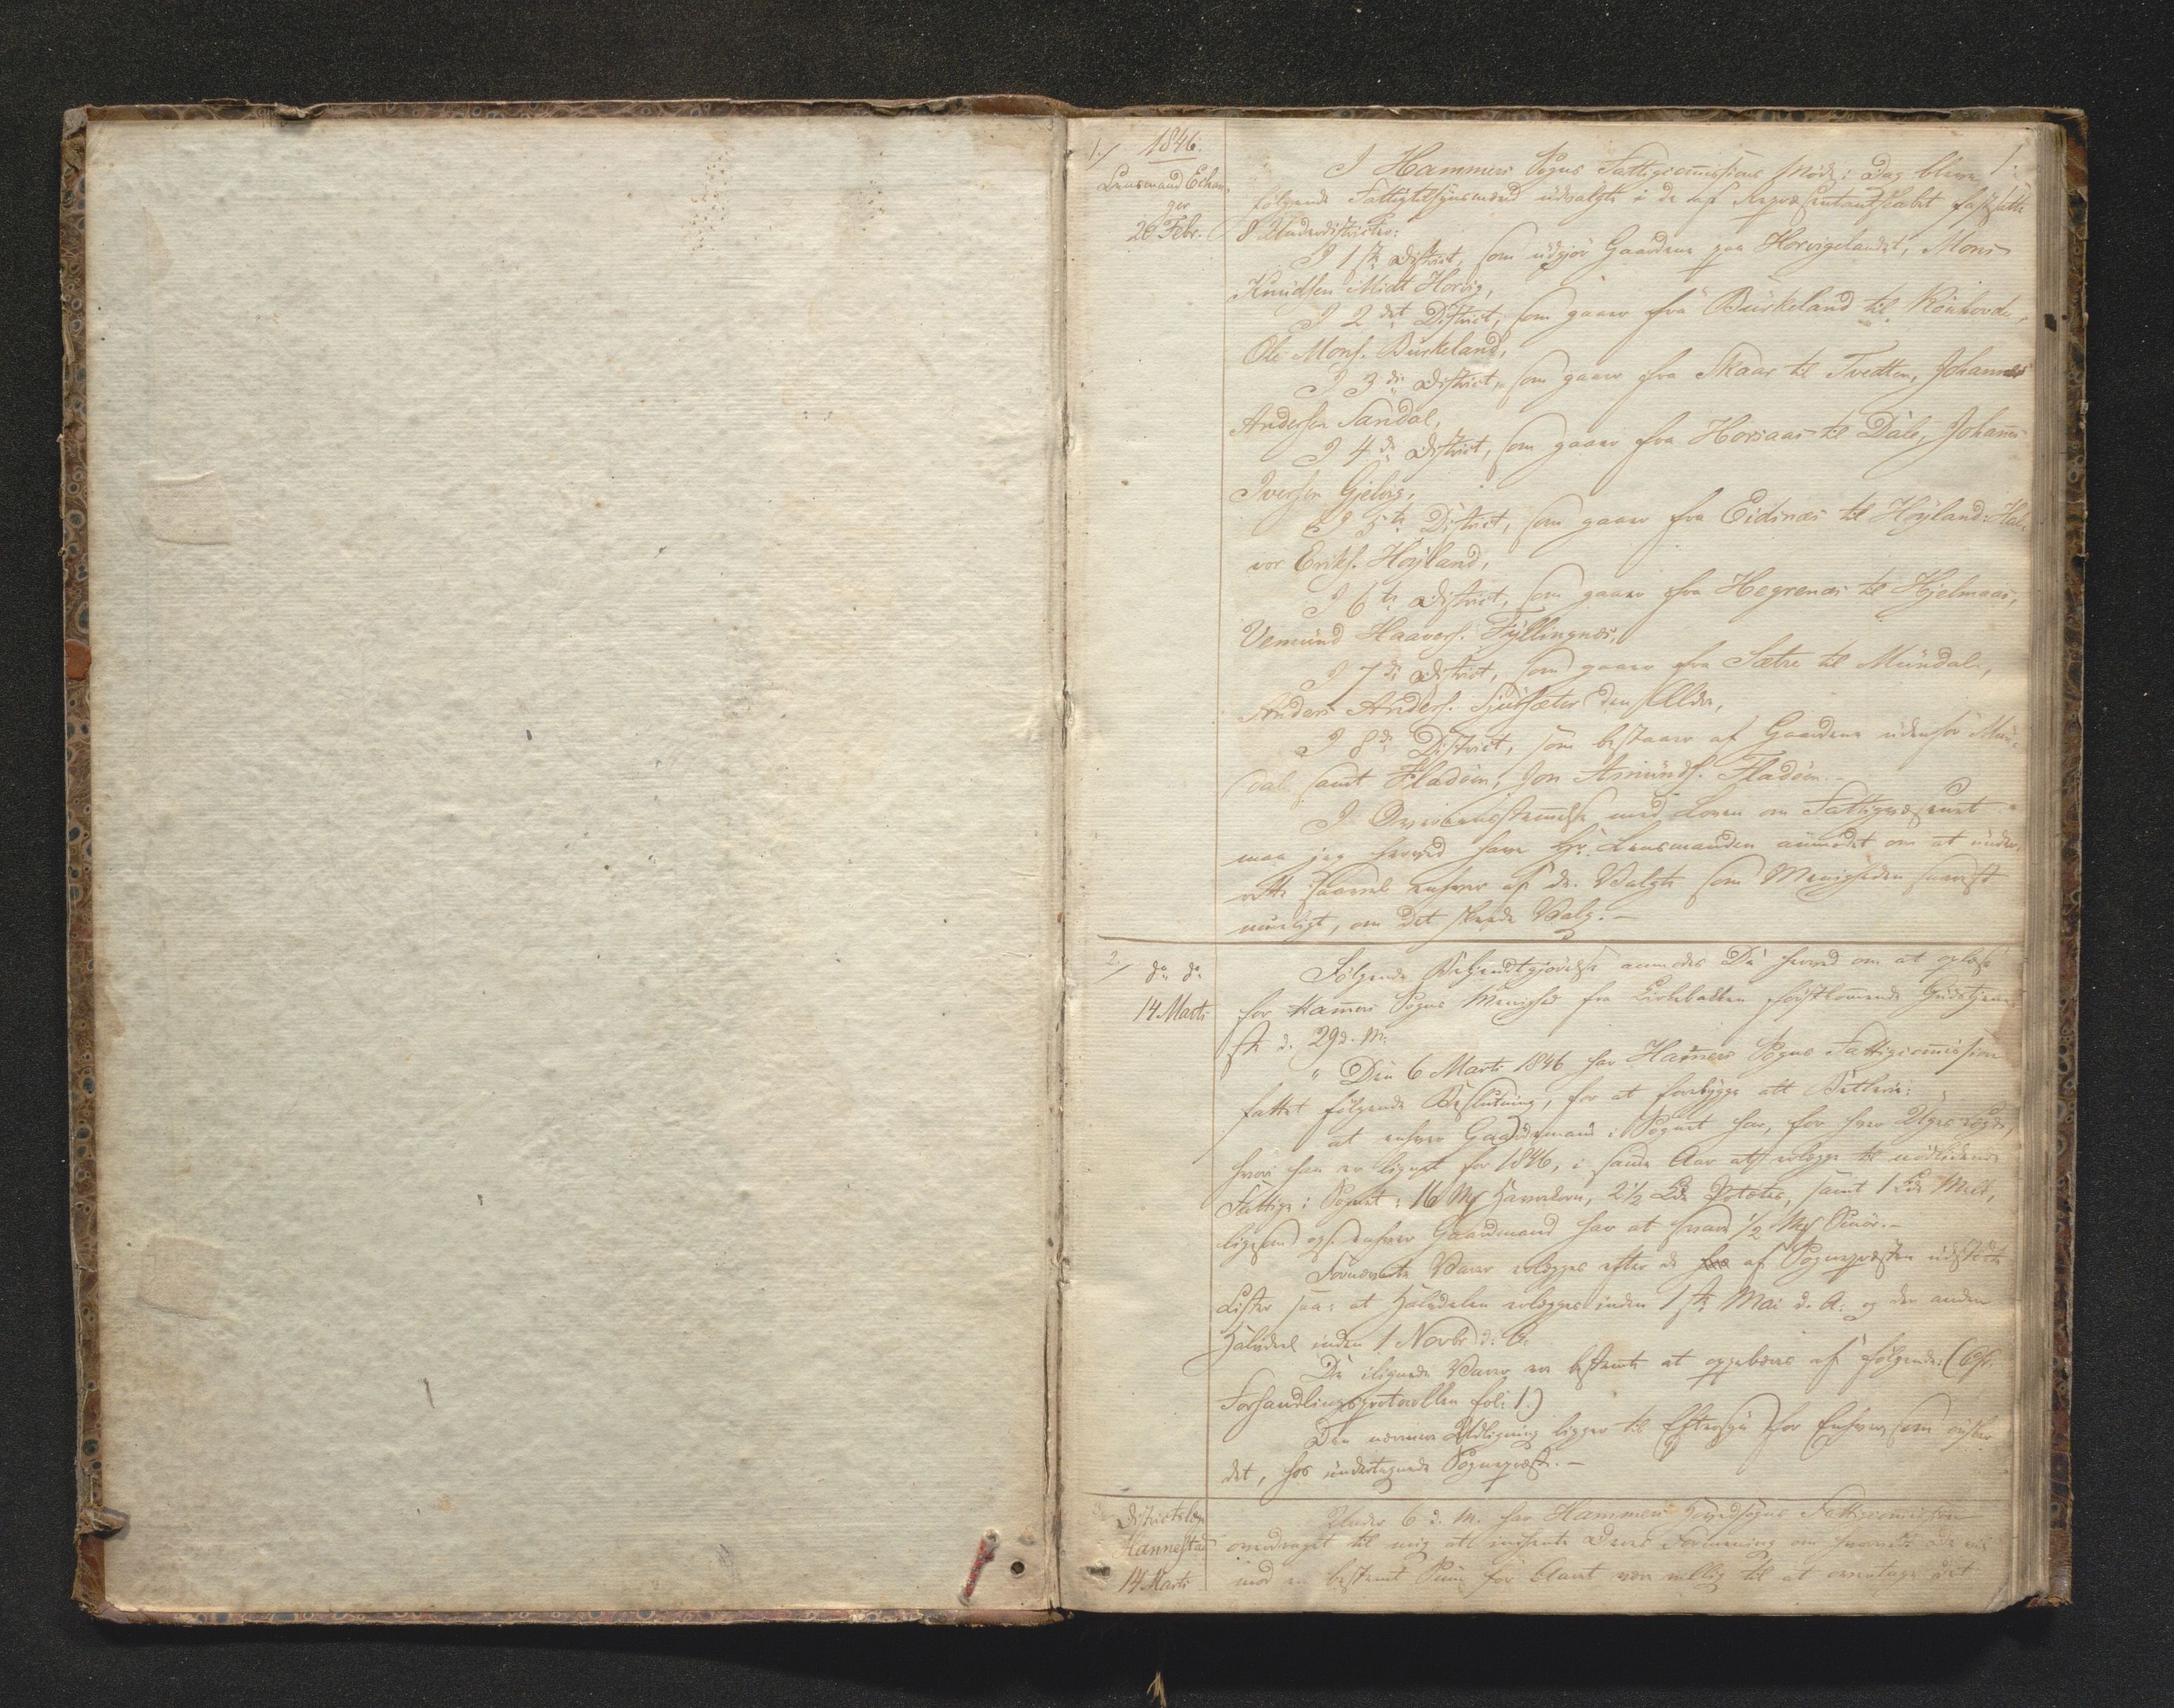 1.
1./ 1846.
Lensmand Echan-
ger
20 Febr.
I Hammers Sogns Fattigcommissions Møde i Dag bleve
følgende Fattigtilsynsmænd udvalgte i de af Repræsentantskabet fastsatte
8 Underdistricter:
I 1ste District, som udgjør Gaardene paa Horvigelandet, Mons
Knudsen Midt Horvig,
I 2det District, som gaaer fra Burkeland til Rönhovde,
Ole Mons. Burkeland,
I 3die District, som gaaer fra Skaar til Tvedten, Johannes
Andersen Sandal,
I 4de District, som gaaer fra Horsaas til Dale, Johans
Iversen Gjelvig,
I 5te District, som gaaer fra Eidsnæs til Høyland: Hal-
vor Eriks. Høyland,
I 6te District, som gaaer fra Hegrenæs til Hjelmaas,
Vemund Haavers. Fyllingnæs,
I 7de District, som gaaer fra Sætre til Mundal,
Anders Anders. Sjursæter den Ældre,
I 8de District, som bestaaer af Gaardene udenfor Mun-
dal samt Fladøen, Jon Amunds. Fladøen.-
I Overeensstemmelse med Loven om Fattigvæsenet
maa jeg herved have Hr. Lensmanden anmodet om at under-
rette saavel enhver af de Valgte som Menigheden snarest
mueligt, om det skeede Valg.-
2./ do do
14 Marts
Følgende Bekjendtgjørelse anmodes De herved om at oplæse
for Hammers Sogns Menighed fra Kirkebakken førstkommende Gudstjene-
ste d. 29 d. M.
"Den 6 Marts 1846 har Hammers Sogns Fattigcommission
fattet følgende Beslutning, for at forebygge alt Betleri:
at enhver Gaardmand i Sognet har, for hver Uges Lægd,
hvori han er lignet for 1846, i samme Aar at erlægge til nødlidende
Fattige i Sognet: 16 Mk Havrekorn, 2½ Kde Poteter, samt 1 Kde Melk,
ligesom ogs. enhver Gaardmand har at svare ½ Mk Smör.-
Fornævnte Varer erlægges efter de af Sognepræsten udstedte
Lister saa: at Halvdelen erlægges inden 1ste Mai d. A. og den anden
Halvdeel inden 1 Novbr d. A.
De ilignede Varer ere bestemte at oppebæres af følgende: (Cfr.
Forhandlingsprotocollen fol: 1.)
Den nærmere Udligning ligger til Eftersyn for Enhver, som ønsker
det, hos undertegnede Sognepræst.-
3. Districtslæge
Hannestad
14 Marts
Under 6 d. M. har Hammers Hovedsogns Fattigcommission
overdraget til mig at indhente Deres Formening om hvorvidt De vil
mod en bestemt Sum for Aaret være villig til at overtage det